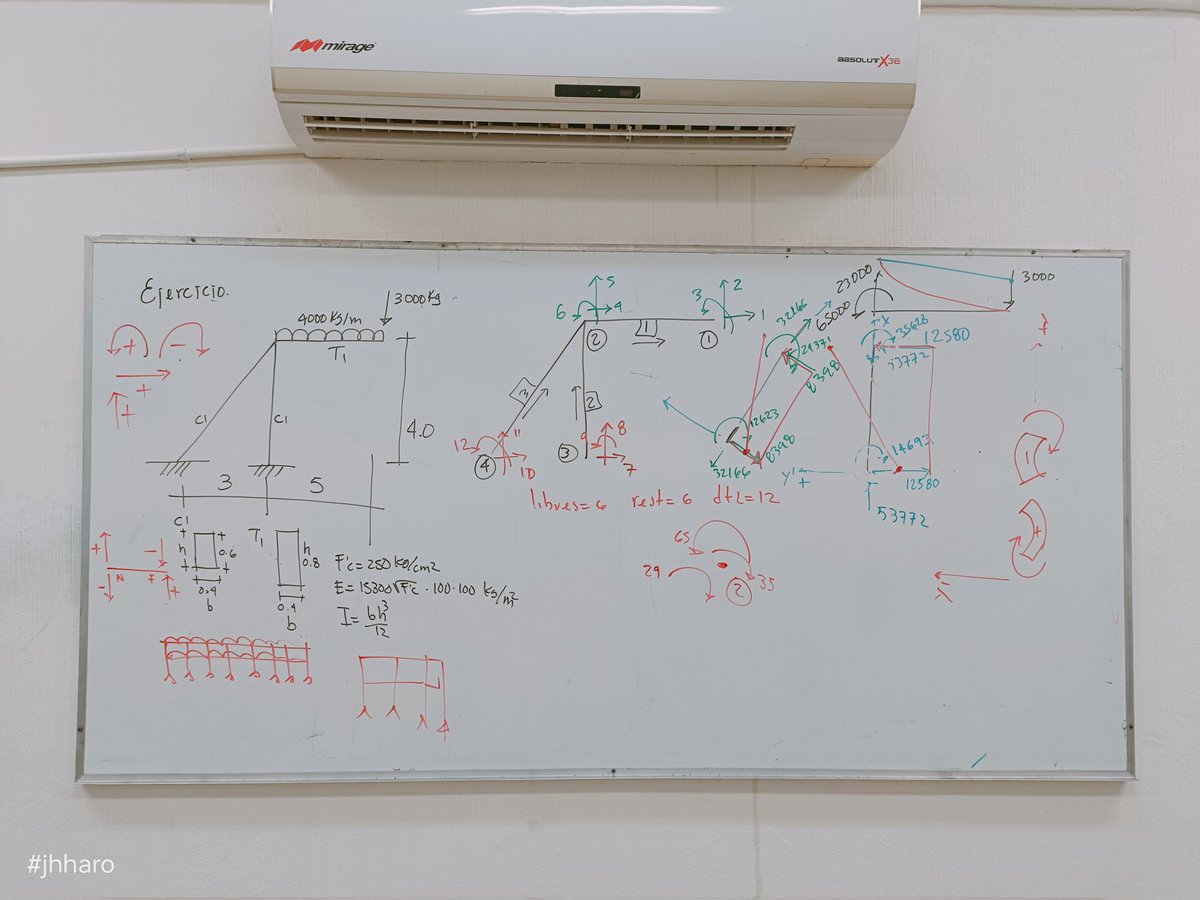 mirage
ABSOLUT X36
Ejercicio.
3000 Kg
4000 Kg/m
T1
+
-
+
+
C1
C1
4.0
3
5
C1
h
0.6
0.4
b
T1
h
0.8
0.4
b
F'c = 250 kg/cm2
E = 15300√F'c · 100·100 kg/m2
I = bh3/12
+
-
N
F
-
+
5
6
4
2
3
1
1
2
1
3
2
12
11
10
4
9
8
7
3
libres=6 rest=6 dtl=12
32166
65000
29371
8398
12623
8398
32166
23000
3000
35628
12580
53772
14693
y'
+
12580
53772
65
29
35
2
#jhharo